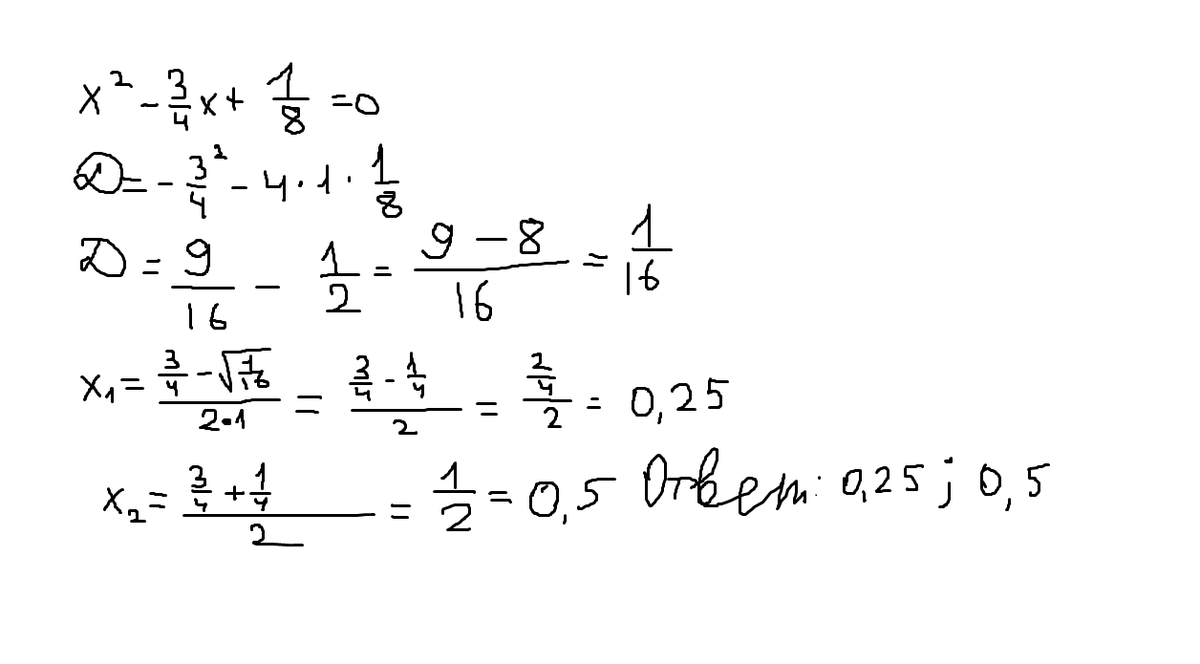 x² - 3/4 x + 1/8 = 0
D = - 3²/4 - 4 · 1 · 1/8
D = 9/16 - 1/2 = (9 - 8)/16 = 1/16
x₁ = (3/4 - √(1/16))/(2·1) = (3/4 - 1/4)/2 = (2/4)/2 = 0,25
x₂ = (3/4 + 1/4)/2 = 1/2 = 0,5 Ответ: 0,25; 0,5